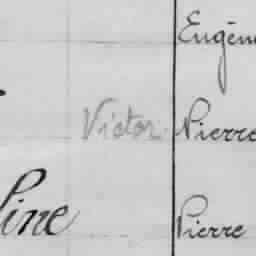 Eugène
Victor Pierre
line Pierre